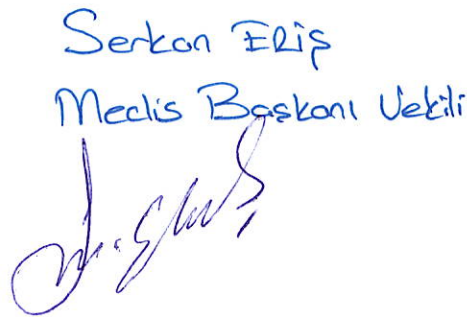 Serkan ERiş
Meclis Başkanı Vekili